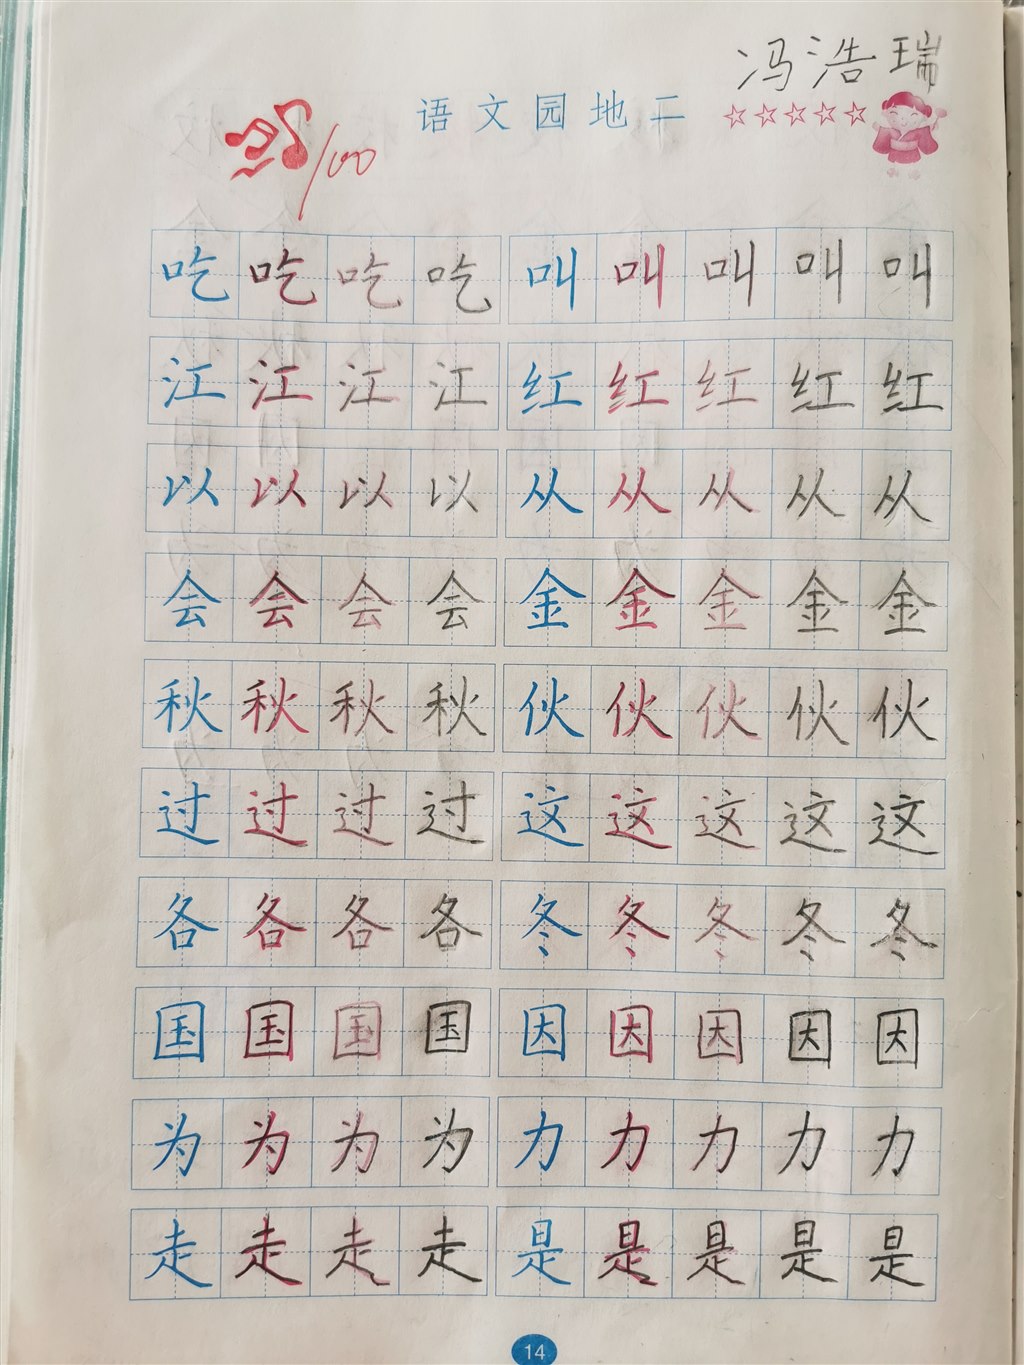 冯浩瑞
语文园地二
/100
吃吃吃吃 叫叫叫叫叫
江江江江 红红红红红
以以以以 从从从从从
会会会会 金金金金金
秋秋秋秋 伙伙伙伙伙
过过过过 这这这这这
各各各各 冬冬冬冬冬
国国国国 因因因因因
为为为为 力力力力力
走走走走 是是是是是
14